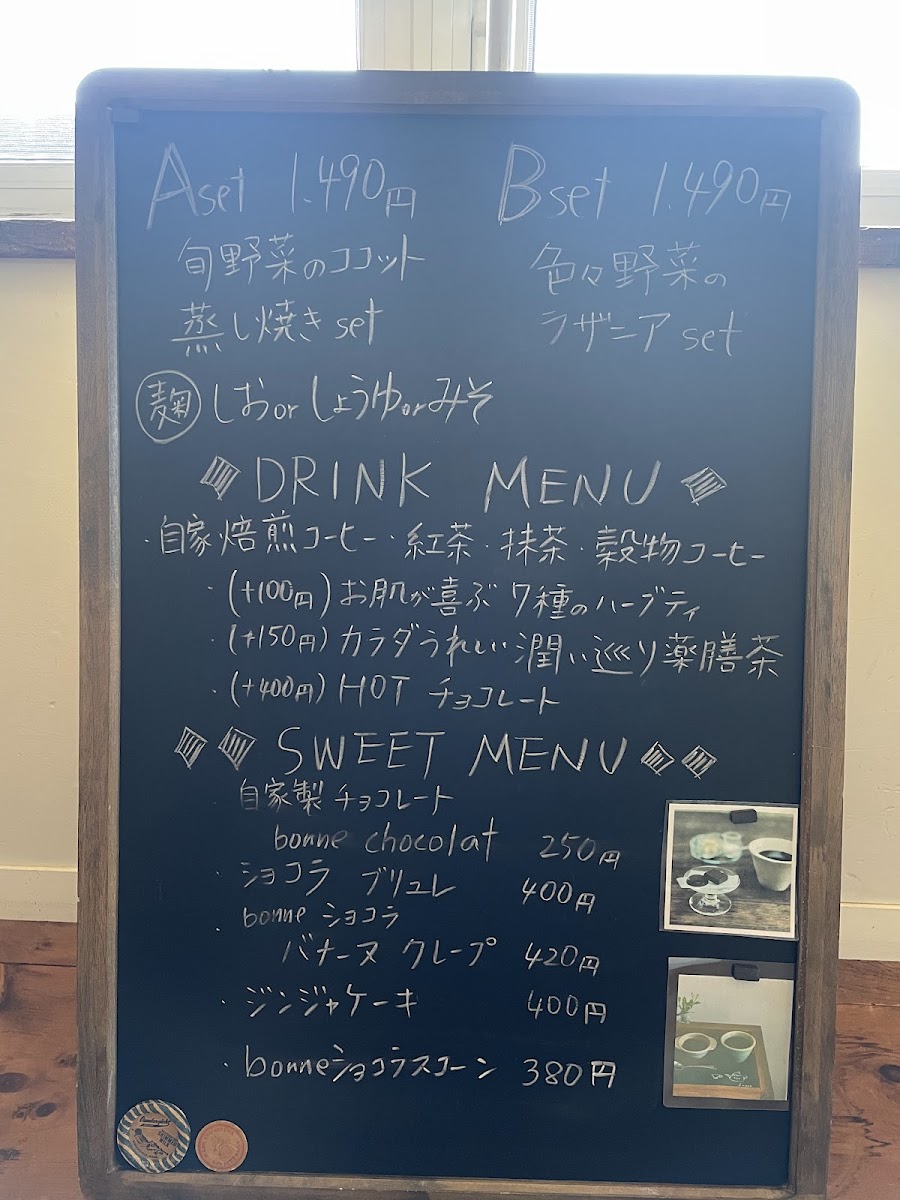 Aset 1.490円
旬野菜のココット
蒸し焼き set
麹 しおorしょうゆorみそ
Bset 1.490円
色々野菜の
ラザニア set
DRINK MENU
・自家焙煎コーヒー・紅茶・抹茶・穀物コーヒー
・(+100円)お肌が喜ぶ 7種のハーブティ
・(+150円)カラダうれしい潤い巡り薬膳茶
・(+400円)HOT チョコレート
SWEET MENU
自家製チョコレート
bonne chocolat 250円
・ショコラ ブリュレ 400円
・bonne ショコラ
バナーヌ クレープ 420円
・ジンジャケーキ 400円
・bonneショコラスコーン 380円